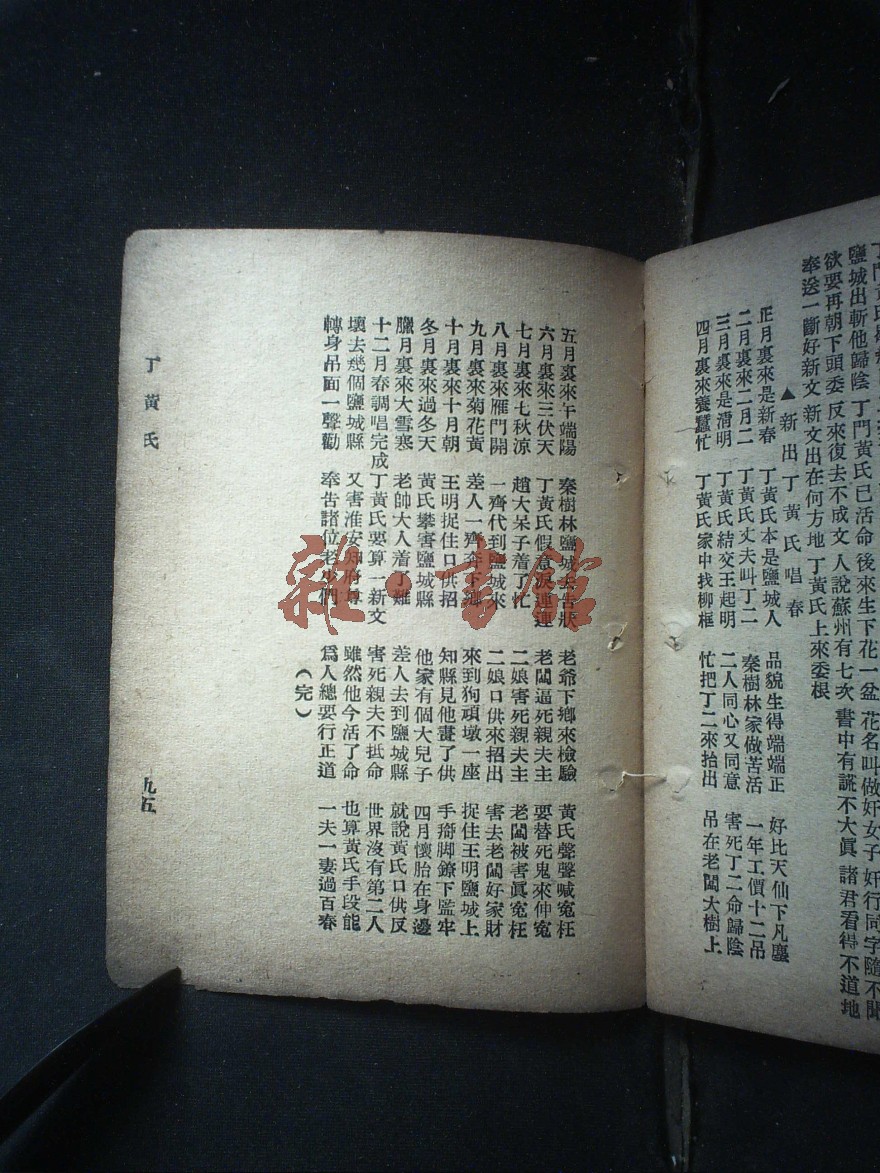 鹽城出斬他歸陰 丁門黃氏已活命 後來生下花一盆 花名叫做奸女子 奸行同字隨不聞
欲要再朝下頭委 反來復去不成文 人說蘇州有七次 書中有謊不大眞 諸君看得不道地
奉送一斷好新文 新文出在何方地 丁黃氏上來委根
▲新出丁黃氏唱春
正月裏來是新春 丁黃氏本是鹽城人 品貌生得端端正 好比天仙下凡塵
二月裏來二月二 丁黃氏丈夫叫丁二 秦樹林家做苦活 一年工價十二吊
三月裏來是淸明 丁黃氏結交王起明 二人同心又同意 害死丁二命歸陰
四月裏來養蠶忙 丁黃氏家中找柳框 忙把丁二來抬出 吊在老闆大樹上
五月裏來午端陽 秦樹林鹽城去告狀 老爺下鄉來檢驗 黃氏聲聲喊寃枉
六月裏來三伏天 丁黃氏假意淚連連 老闆逼死親夫主 要替死鬼來伸寃
七月裏來七秋涼 趙大呆子着了忙 二娘害死親夫主 老闆被害眞寃枉
八月裏來雁門開 一齊代到鹽城來 二娘口供來招出 害去老闆好家財
九月裏來菊花黃 差人一齊奔下鄉 來到狗頑墩一座 捉住王明鹽城上
十月裏來十月朝 王明捉住口供招 知縣見他畫了供 手掰脚鐐下監牢
冬月裏來過冬天 黃氏攀害鹽城縣 他家有個大兒子 四月懷胎在身邊
臘月裏來大雪寒 老帥大人着了難 差人去到鹽城縣 就說黃氏口供反
十二月春調唱完成 丁黃氏要算一新文 害死親夫不抵命 世界沒有第二人
壞去幾個鹽城縣 又害淮安知府尊 雖然他今活了命 也算黃氏手段能
轉身吊面一聲勸 奉吿諸位老少們 爲人總要行正道 一夫一妻過百春
(完)
丁黃氏
九五
雜·書館